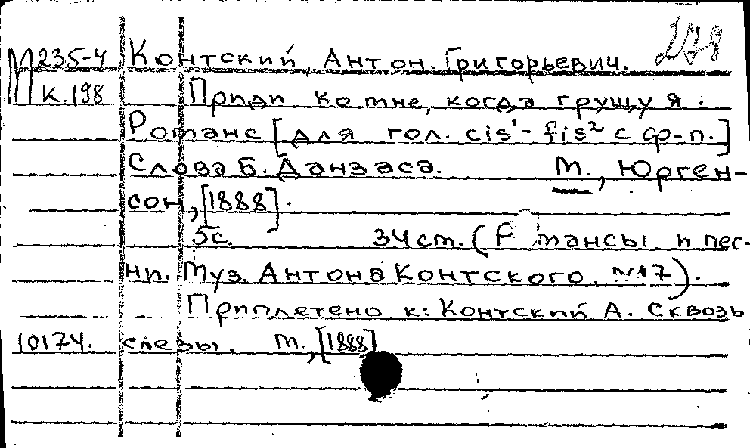 238
М 235-4 Контский, Антон Григорьевич.
К.198 Приди ко мне, когда грущу я.
Романс [для гол. cis¹-fis² с ф-п.]
Слова Б. Данзаса. М., Юрген-
сон, [1888].
5с. 34 см. (Р мансы и пес-
ни. Муз. Антона Контского. №17).
Приплетено к: Контский А. Сквозь
10174. слезы. М., [1888]